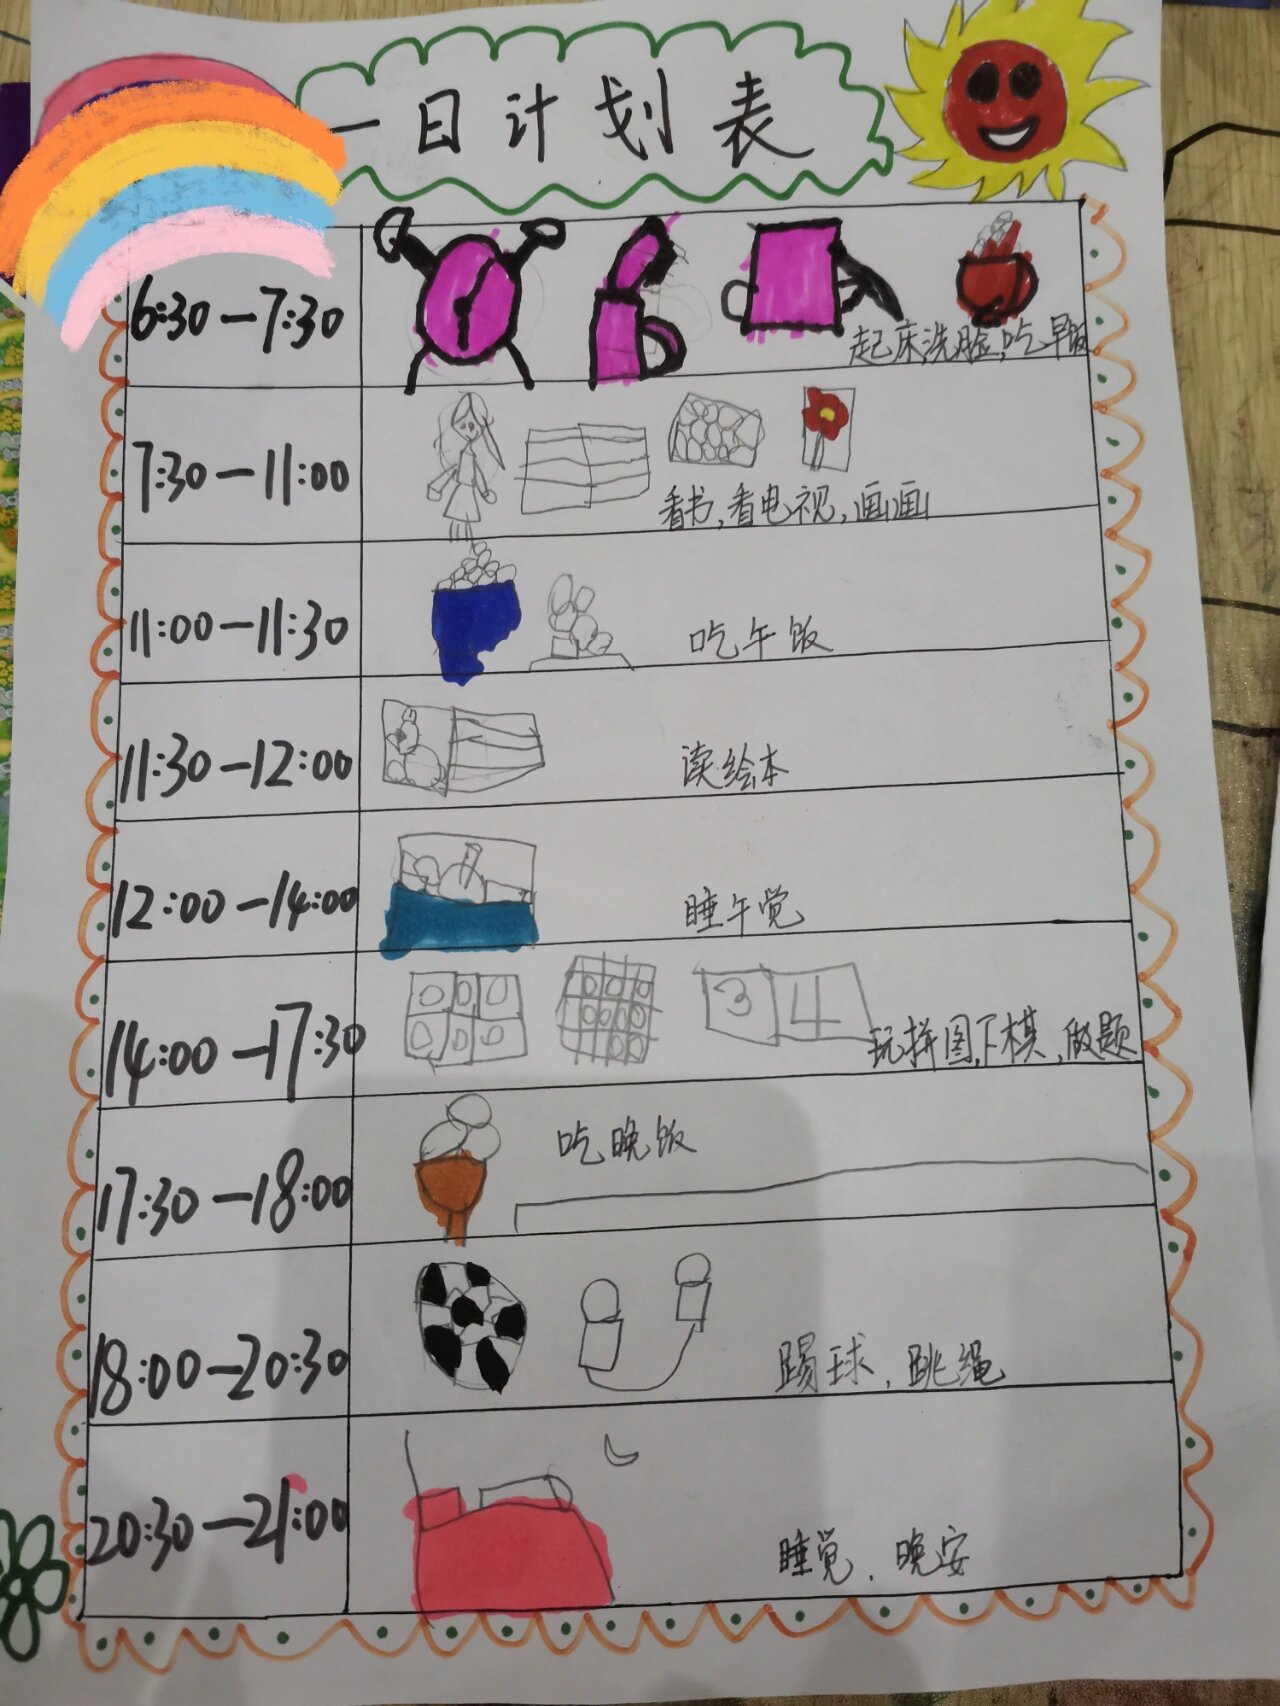 一日计划表
6:30—7:30
起床,洗脸,吃早饭
7:30—11:00
看书,看电视,画画
11:00—11:30
吃午饭
11:30—12:00
读绘本
12:00—14:00
睡午觉
14:00—17:30
3 4
玩拼图,下棋,做题
17:30—18:00
吃晚饭
18:00—20:30
踢球,跳绳
20:30—21:00
睡觉,晚安